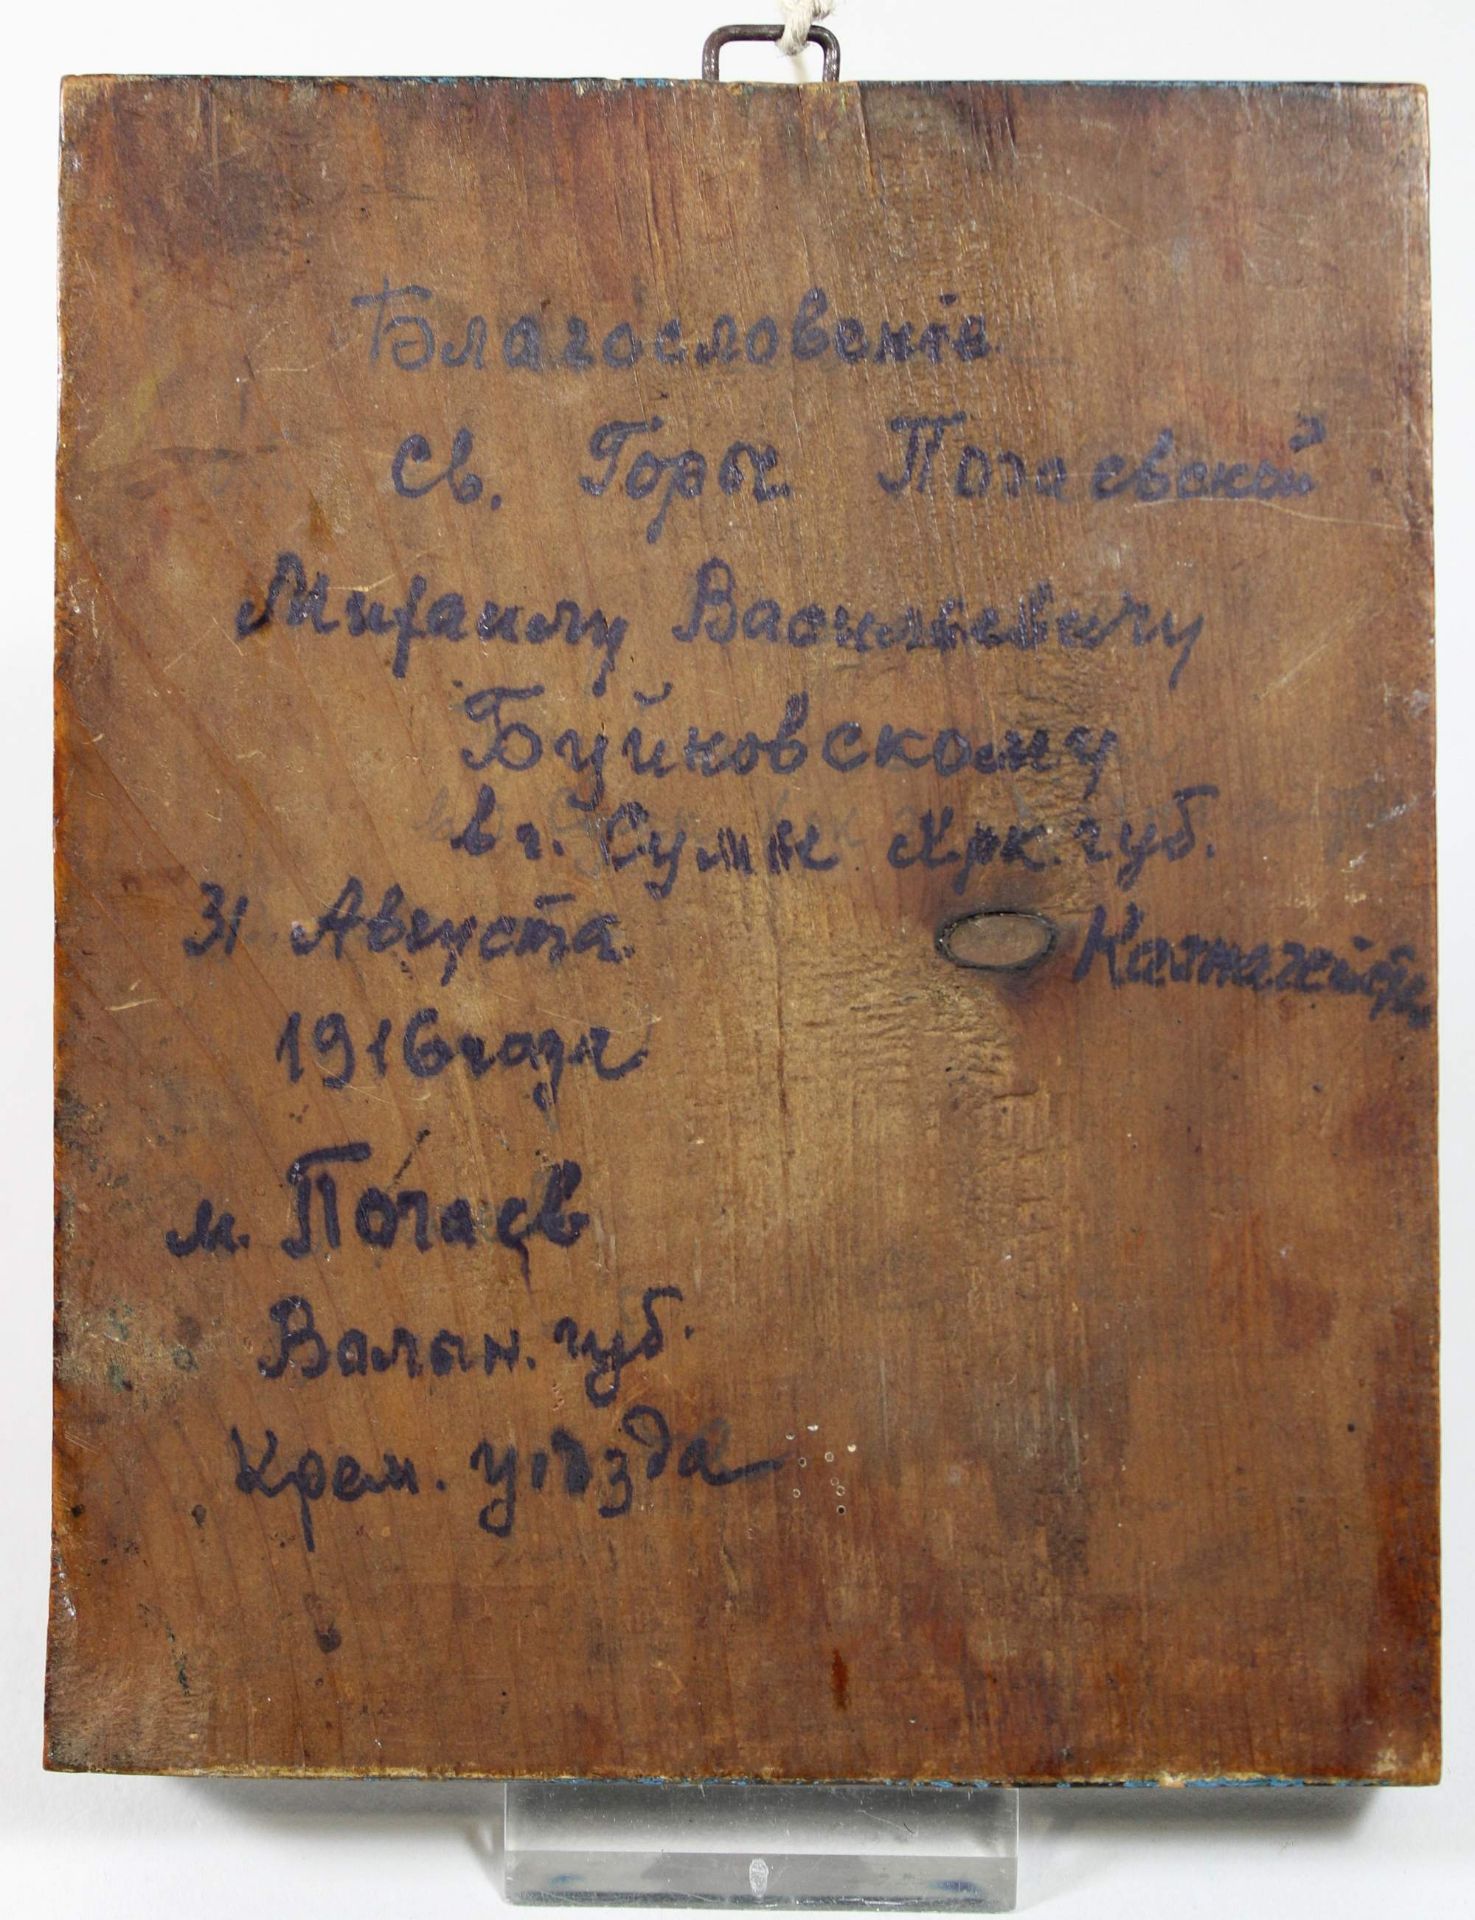 Благословенiе
Св. Горы Почаевской
Михаилу Васильевичу
Буйновскому
в г. Сумы Хрк. губ.
31 Августа
1916 года
м. Почаев
Валын. губ.
Крем. уѣзда